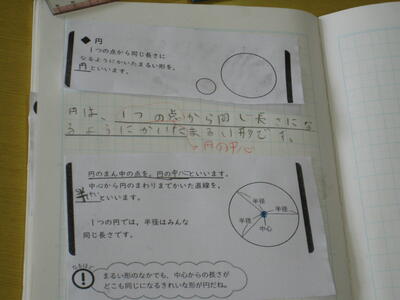 ◆ 円
1つの点から同じ長さに
なるようにかいたまるい形を、
円といいます。
円は、1つの点から同じ長さにな
るようにかいたまるい形です。
円の中心
円のまん中の点を、円の中心といいます。
中心から円のまわりまでかいた直線を、
半けいといいます。
1つの円では、半径はみんな
同じ長さです。
半径
半径
半径
中心
なるほど
!
まるい形のなかでも、中心からの長さが
どこも同じになるきれいな形が円だね。